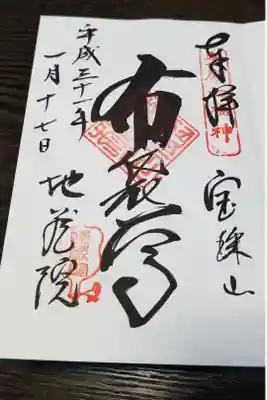 奉拝
宝珠山
布袋尊
地蔵院
平成三十一年
一月十七日